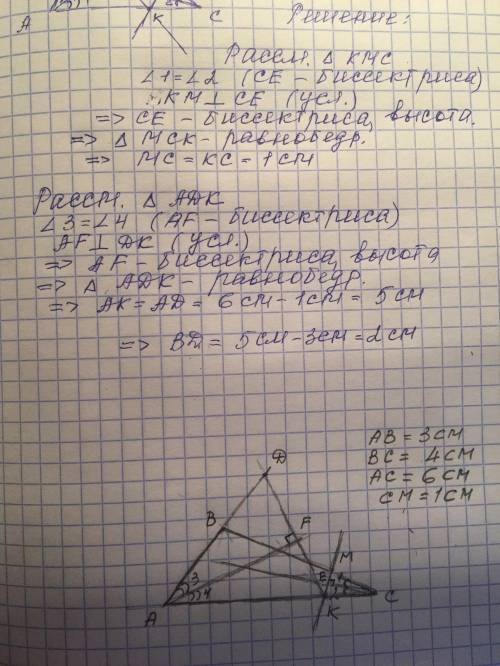 A K C Решение:
Рассм. △ KMC
∠1=∠2 (CE - биссектриса)
KM⊥CE (усл.)
=> CE - биссектриса, высота.
=> △ MCK - равнобедр.
=> MC = KC = 1 см
Рассм. △ ADK
∠3=∠4 (AF - биссектриса)
AF⊥DK (усл.)
=> AF - биссектриса, высота
=> △ ADK - равнобедр.
=> AK = AD = 6 см - 1 см = 5 см
=> BD = 5 см - 3 см = 2 см
AB = 3 см
BC = 4 см
AC = 6 см
CM = 1 см
D
B F
M
3 E
4
A K C